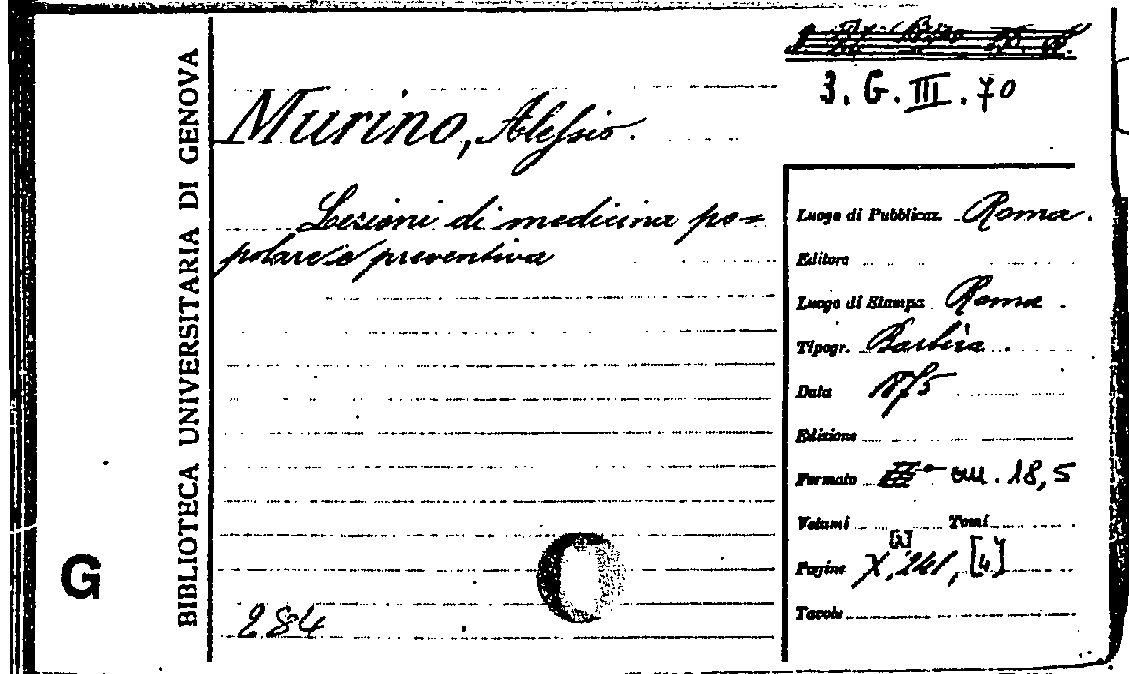 BIBLIOTECA UNIVERSITARIA DI GENOVA
G
3. G. III. 70
Murino, Alessio.
Lezioni di medicina po=
polare e preventiva
284
Luogo di Pubblicaz. Roma.
Editore
Luogo di Stampa Roma.
Tipogr. Barbèra.
Data 1875
Edizione
Formato cm. 18,5
Volumi Tomi
Pagine X, 241, [4]
Tavole